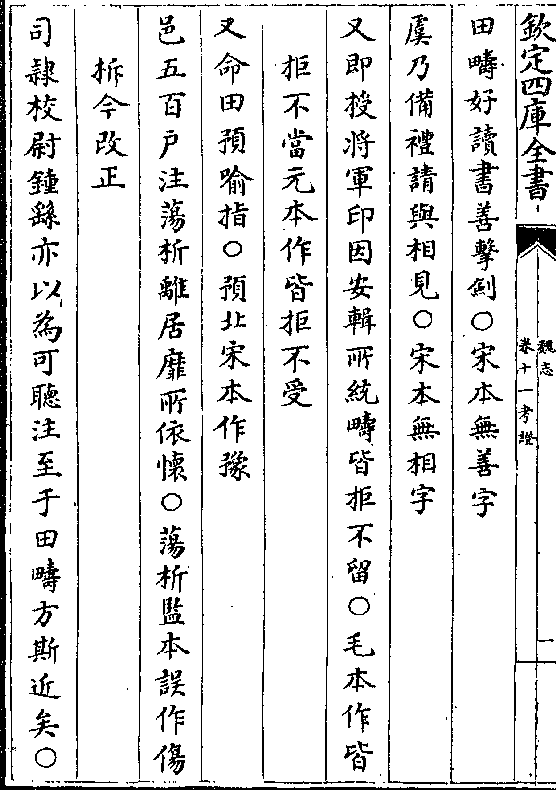 欽定四庫全書
魏志
卷十一考證
一
田疇好讀書善擊劍〇宋本無善字
虞乃備禮請與相見〇宋本無相字
又即授將軍印因安輯所統疇皆拒不留〇毛本作皆
拒不當元本作皆拒不受
又命田預喻指〇預北宋本作豫
邑五百戸注蕩析離居靡所依懷〇蕩析監本誤作傷
拆今改正
司隸校尉鍾繇亦以為可聽注至于田疇方斯近矣〇